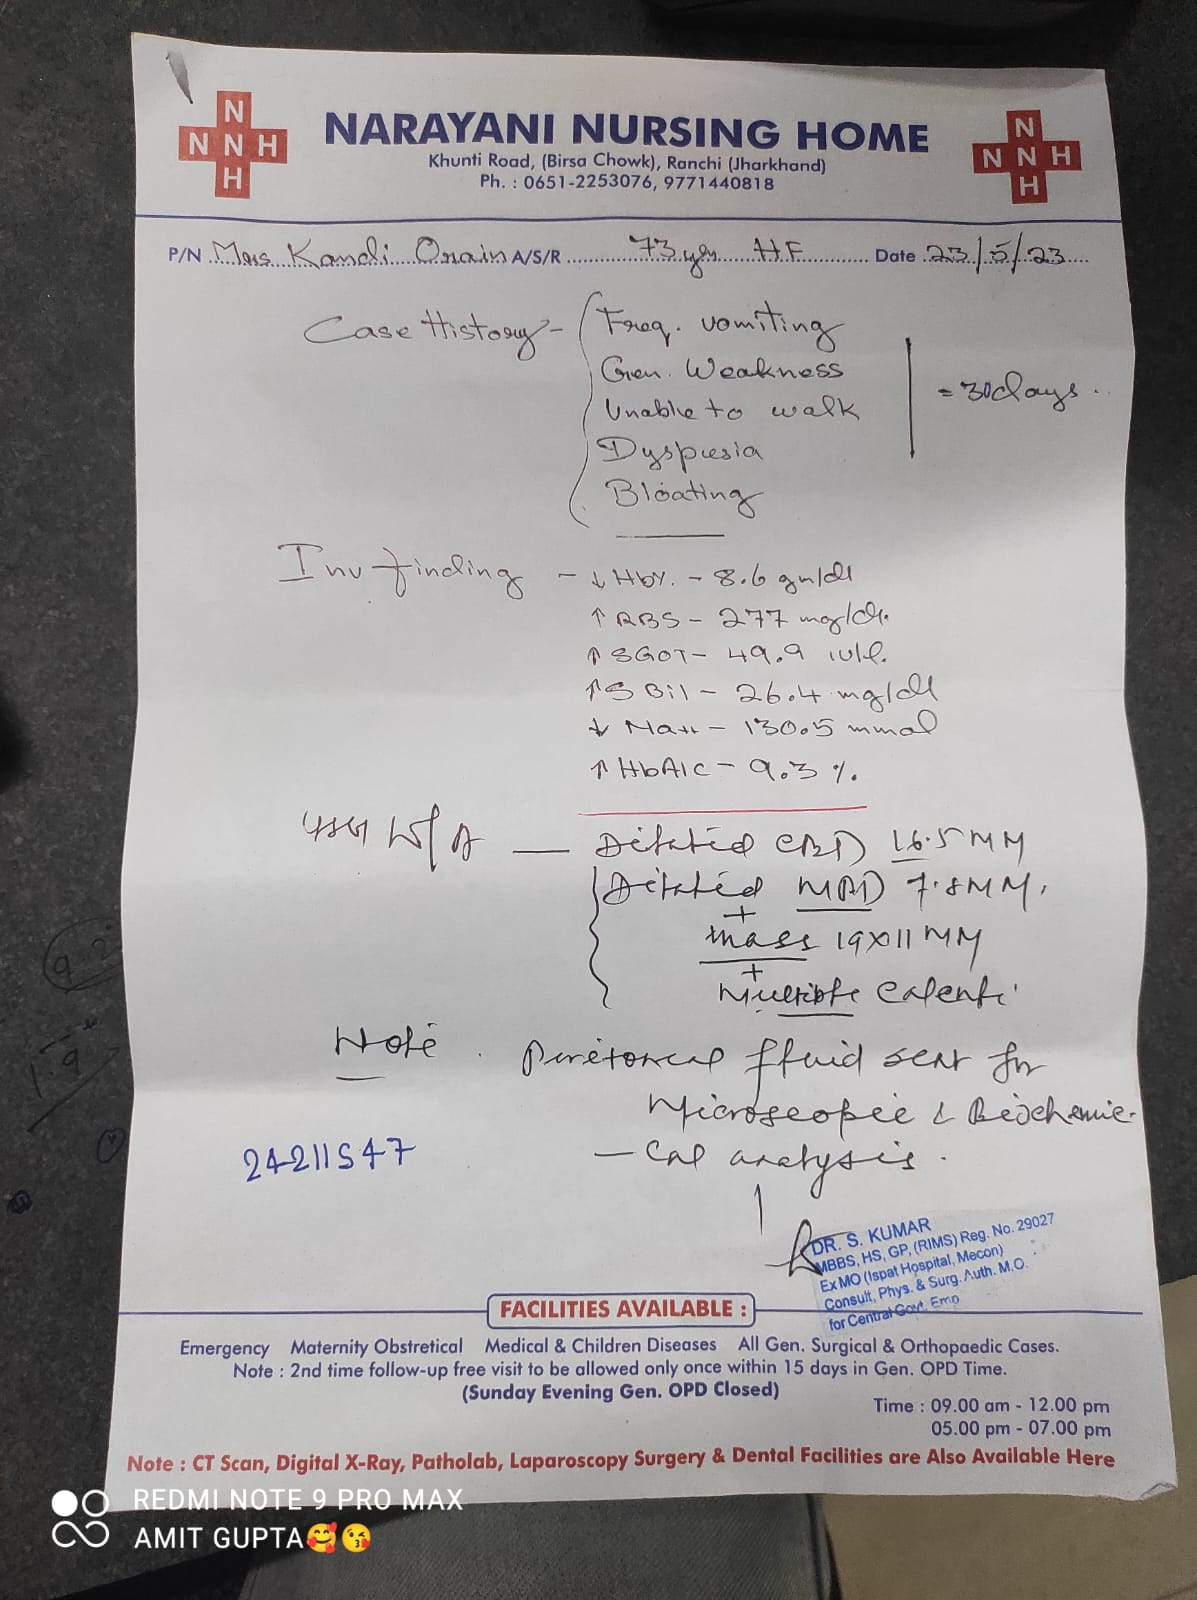 N
NNH
H
NARAYANI NURSING HOME
Khunti Road, (Birsa Chowk), Ranchi (Jharkhand)
Ph. : 0651-2253076, 9771440818
N
NNH
H
P/N Mrs Kandi Orain A/S/R 73 yrs HF Date 23/5/23
Case History - Freq. vomiting
Gen. Weakness
Unable to walk
Dyspesia
Bloating
= 30 days
Inv finding - ↓ Hb%. - 8.6 gm/dl
↑ RBS - 277 mg/dl.
↑ SGOT - 49.9 iu/l.
↑ S Bil - 26.4 mg/dl
↓ Na++ - 130.5 mmol
↑ HbA1c - 9.3 %.
W/A — Dilated CBD 16.5 MM
Dilated MPD 7.8 MM,
+
mass 19X11 MM
+
Multiple Calculi
Note. Peritoneal fluid sent for
Microscopic & Biochemi-
-cal analysis.
24211547
DR. S. KUMAR
MBBS, HS, GP, (RIMS) Reg. No. 29027
Ex MO (Ispat Hospital, Mecon)
Consult, Phys. & Surg. Auth. M.O.
for Central Govt. Emp
FACILITIES AVAILABLE :
Emergency Maternity Obstretical Medical & Children Diseases All Gen. Surgical & Orthopaedic Cases.
Note : 2nd time follow-up free visit to be allowed only once within 15 days in Gen. OPD Time.
(Sunday Evening Gen. OPD Closed)
Time : 09.00 am - 12.00 pm
05.00 pm - 07.00 pm
Note : CT Scan, Digital X-Ray, Patholab, Laparoscopy Surgery & Dental Facilities are Also Available Here
REDMI NOTE 9 PRO MAX
AMIT GUPTA🥰😘